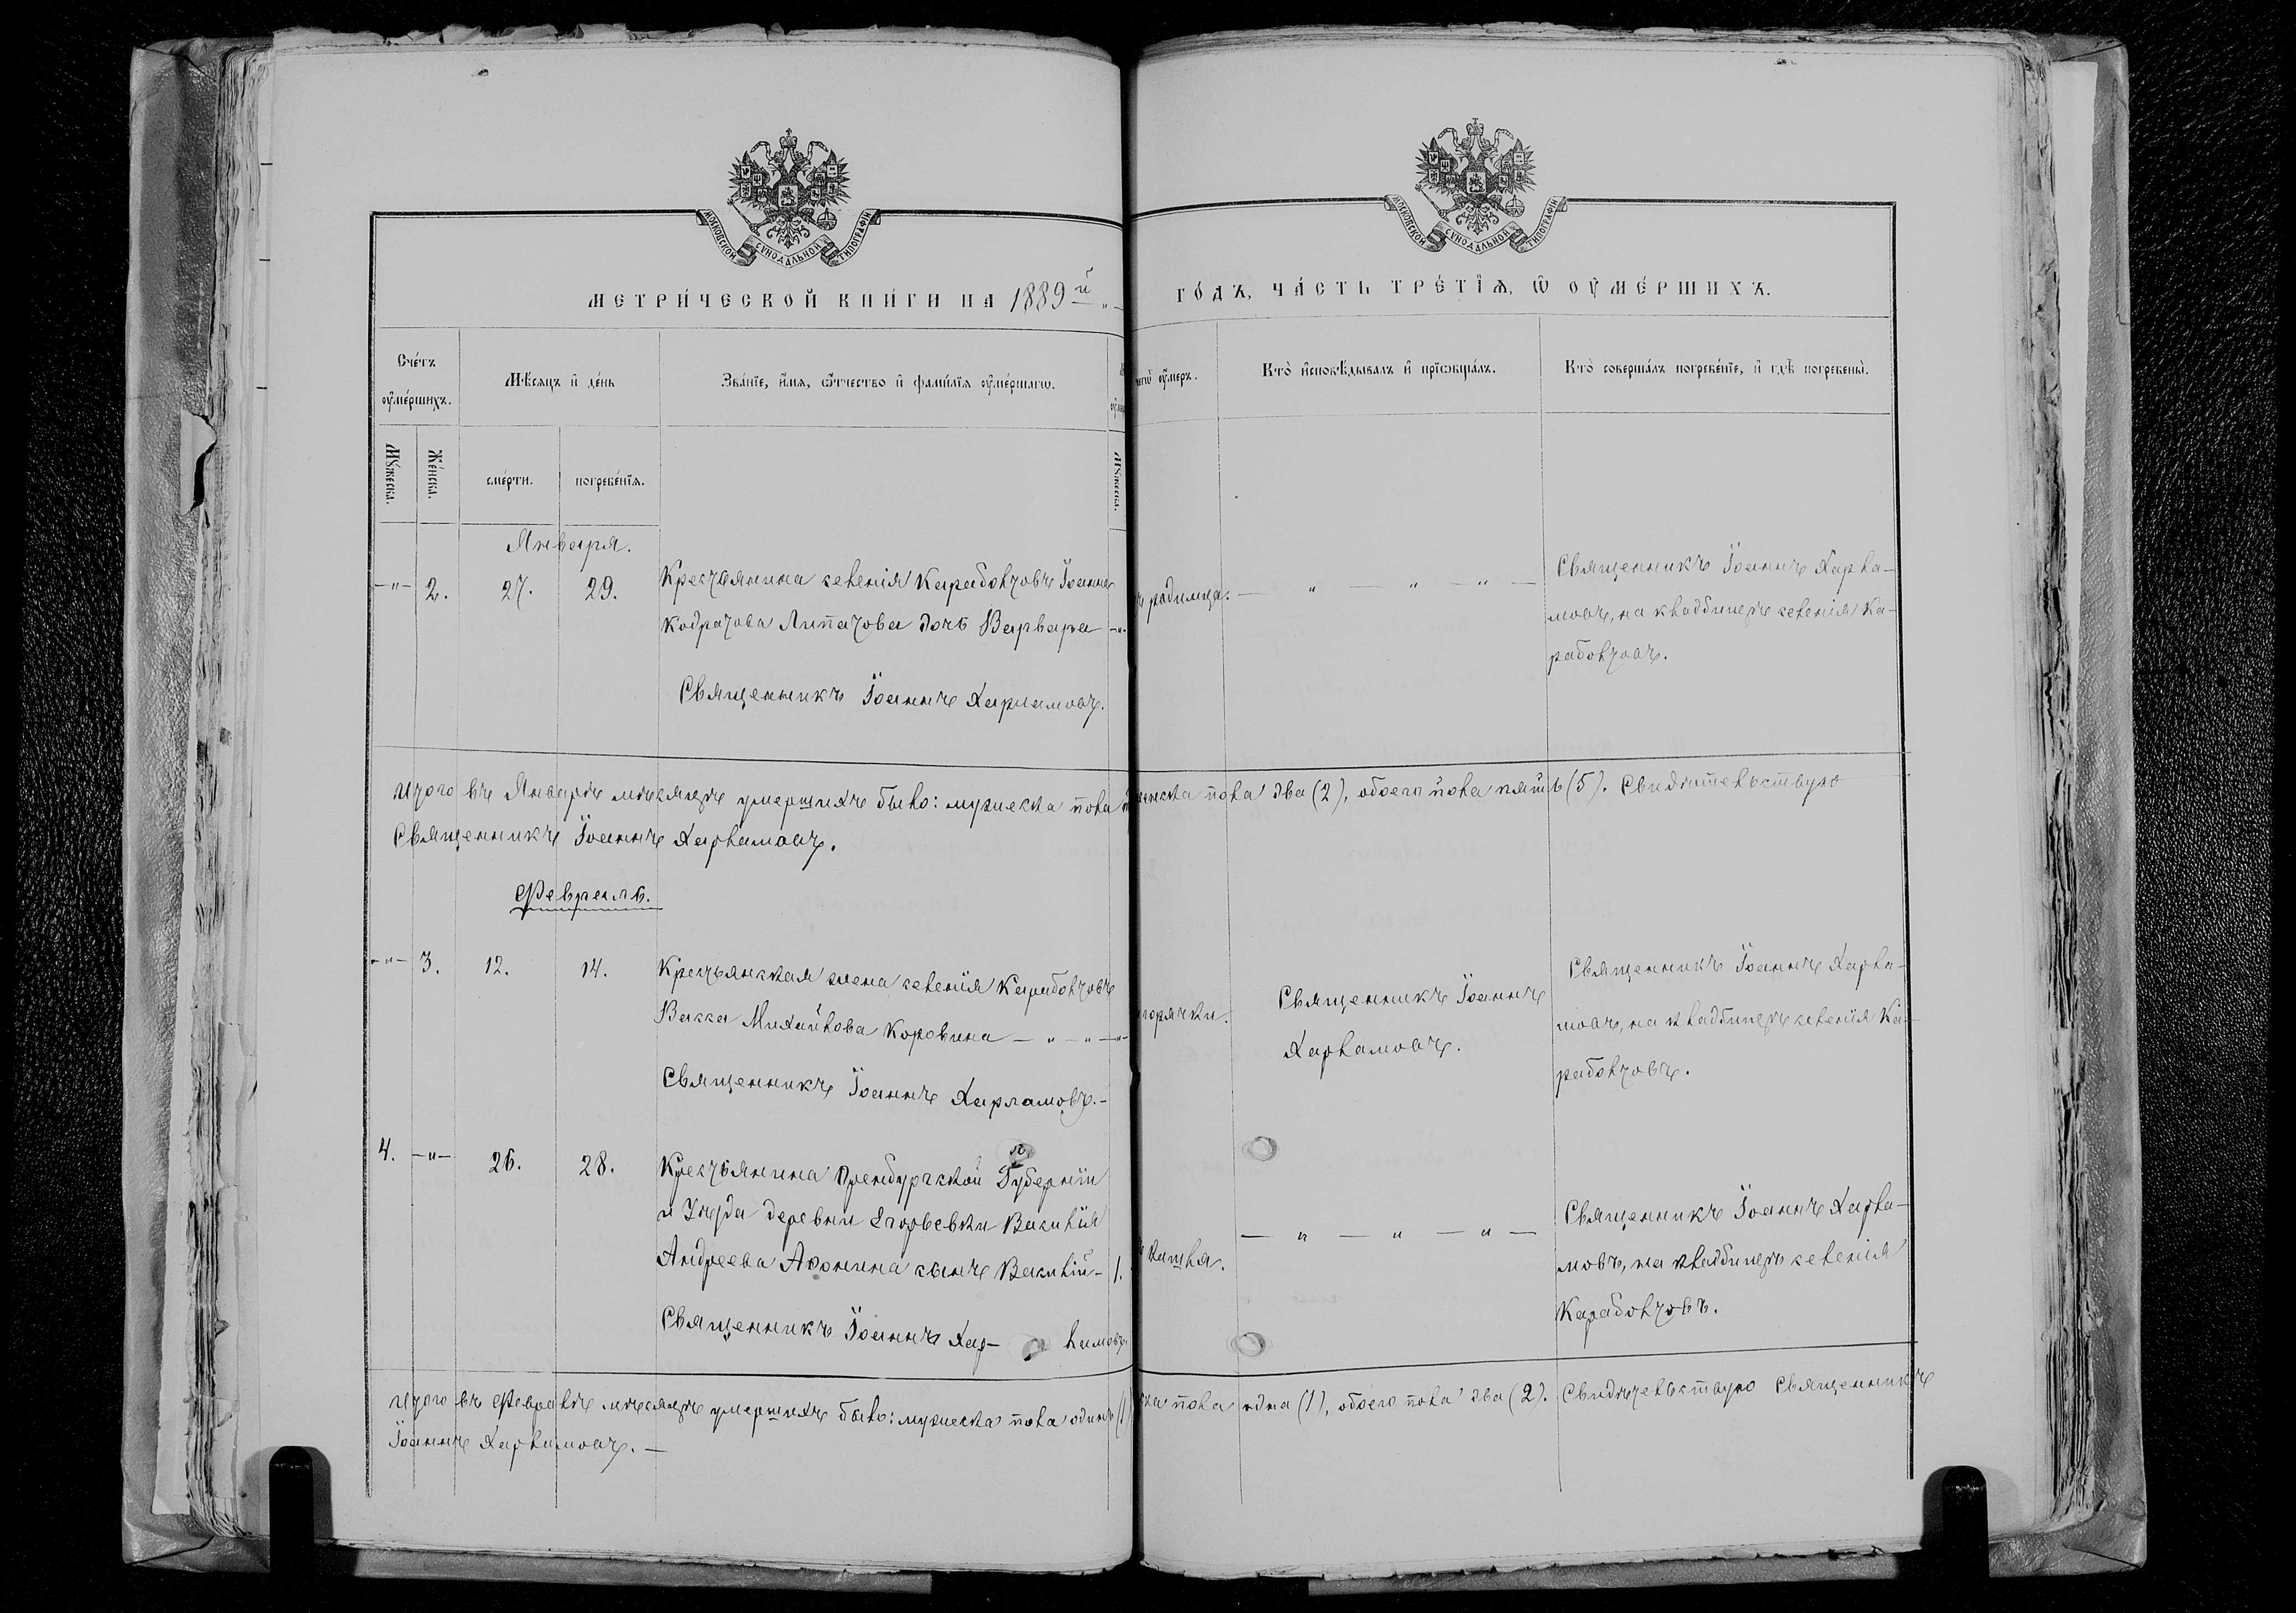 МОСКОВСКОЙ СУНОДАЛЬНОЙ ТИПОГРАФІИ
МОСКОВСКОЙ СУНОДАЛЬНОЙ ТИПОГРАФІИ
МЕТРИ́ЧЕСКОЙ КНИ́ГИ НА 1889й
ГО́ДЪ, ЧА́СТЬ ТРЕ́ТІѦ, Ѿ ОУ҆МЕ́РШИХЪ.
Сче́тъ оу҆ме́ршихъ.
Мѣ́сяцъ и҆ де́нь
Зва́нїе, и҆́мя, ѻ҆́тчество и҆ фами́лїя оу҆ме́ршагѡ.
чегѡ̀ оу҆́меръ.
Кто̀ и҆сповѣ́дывалъ и҆ прїѡбща́лъ.
Кто̀ соверша́лъ погребе́нїе, и҆ гдѣ̀ погребены̀.
Мꙋ́жеска.
Же́нска.
сме́рти.
погребе́нїя.
Мꙋ́жеска.
Января.
2. 27. 29.
Крестьянина селенія Караболтовъ Іоанна
Кодратова Липатова дочь Варвара
Священникъ Іоаннъ Харламовъ.
родимца.
Священникъ Іоаннъ Харла-
мовъ, на кладбищѣ селенія Ка-
раболтовъ.
Итого въ Январѣ мѣсяцѣ умершихъ было: мужеска пола
женска пола два (2), обоего пола пять (5). Свидѣтельствую
Священникъ Іоаннъ Харламовъ.
Февраль.
3. 12. 14.
Крестьянская жена селенія Караболтовъ
Васса Михайлова Коровина
Священникъ Іоаннъ Харламовъ.
горячки.
Священникъ Іоаннъ
Харламовъ.
Священникъ Іоаннъ Харла-
мовъ, на кладбищѣ селенія Ка-
раболтовъ.
4. 26. 28.
Крестьянина Оренбургской Губерніи
и Уѣзда деревни Егорьевки Василія
Андреева Афонина сынъ Василій 1.
Священникъ Іоаннъ Хар- ламовъ
кашля.
Священникъ Іоаннъ Харла-
мовъ, на кладбищѣ селенія
Караболтовъ.
Итого въ Февралѣ мѣсяцѣ умершихъ было: мужеска пола одинъ (1
ска пола одна (1), обоего пола два (2). Свидѣтельствую Священникъ
Іоаннъ Харламовъ.